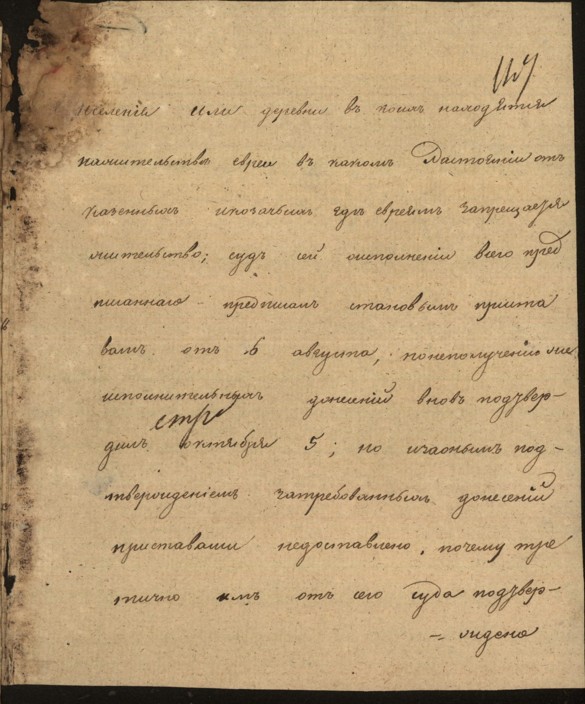 114
селенiя или деревни въ коихъ находятся
на жительстве евреи въ какомъ Растоянiи отъ
Казенныхъ и козачьихъ где евреямъ запрещается
жительство; судъ сей о исполненiи всего пред
писаннаго предписалъ становымъ приста
вамъ отъ 6 августа, по неполученiи же
исполнительныхъ донесенiй вновь подтвер-
стро
дилъ октября 5; но и за онымъ под-
твержденiемъ затребованныхъ донесенiй
приставами недоставлено, почему тре
тично имъ отъ сего суда подтвер-
= ждено